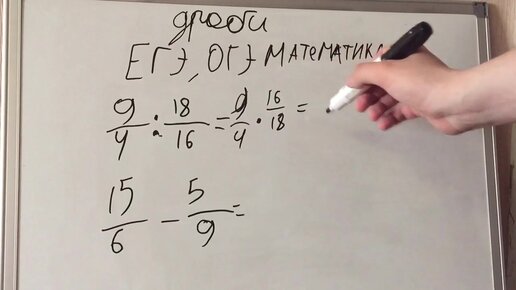 дроби
ЕГЭ, ОГЭ математика
9/4 : 18/16 = 9/4 · 16/18 =
15/6 - 5/9 =